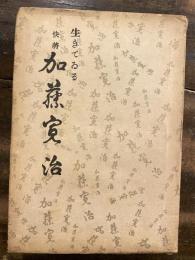 生きてゐる
快将
加藤寛治